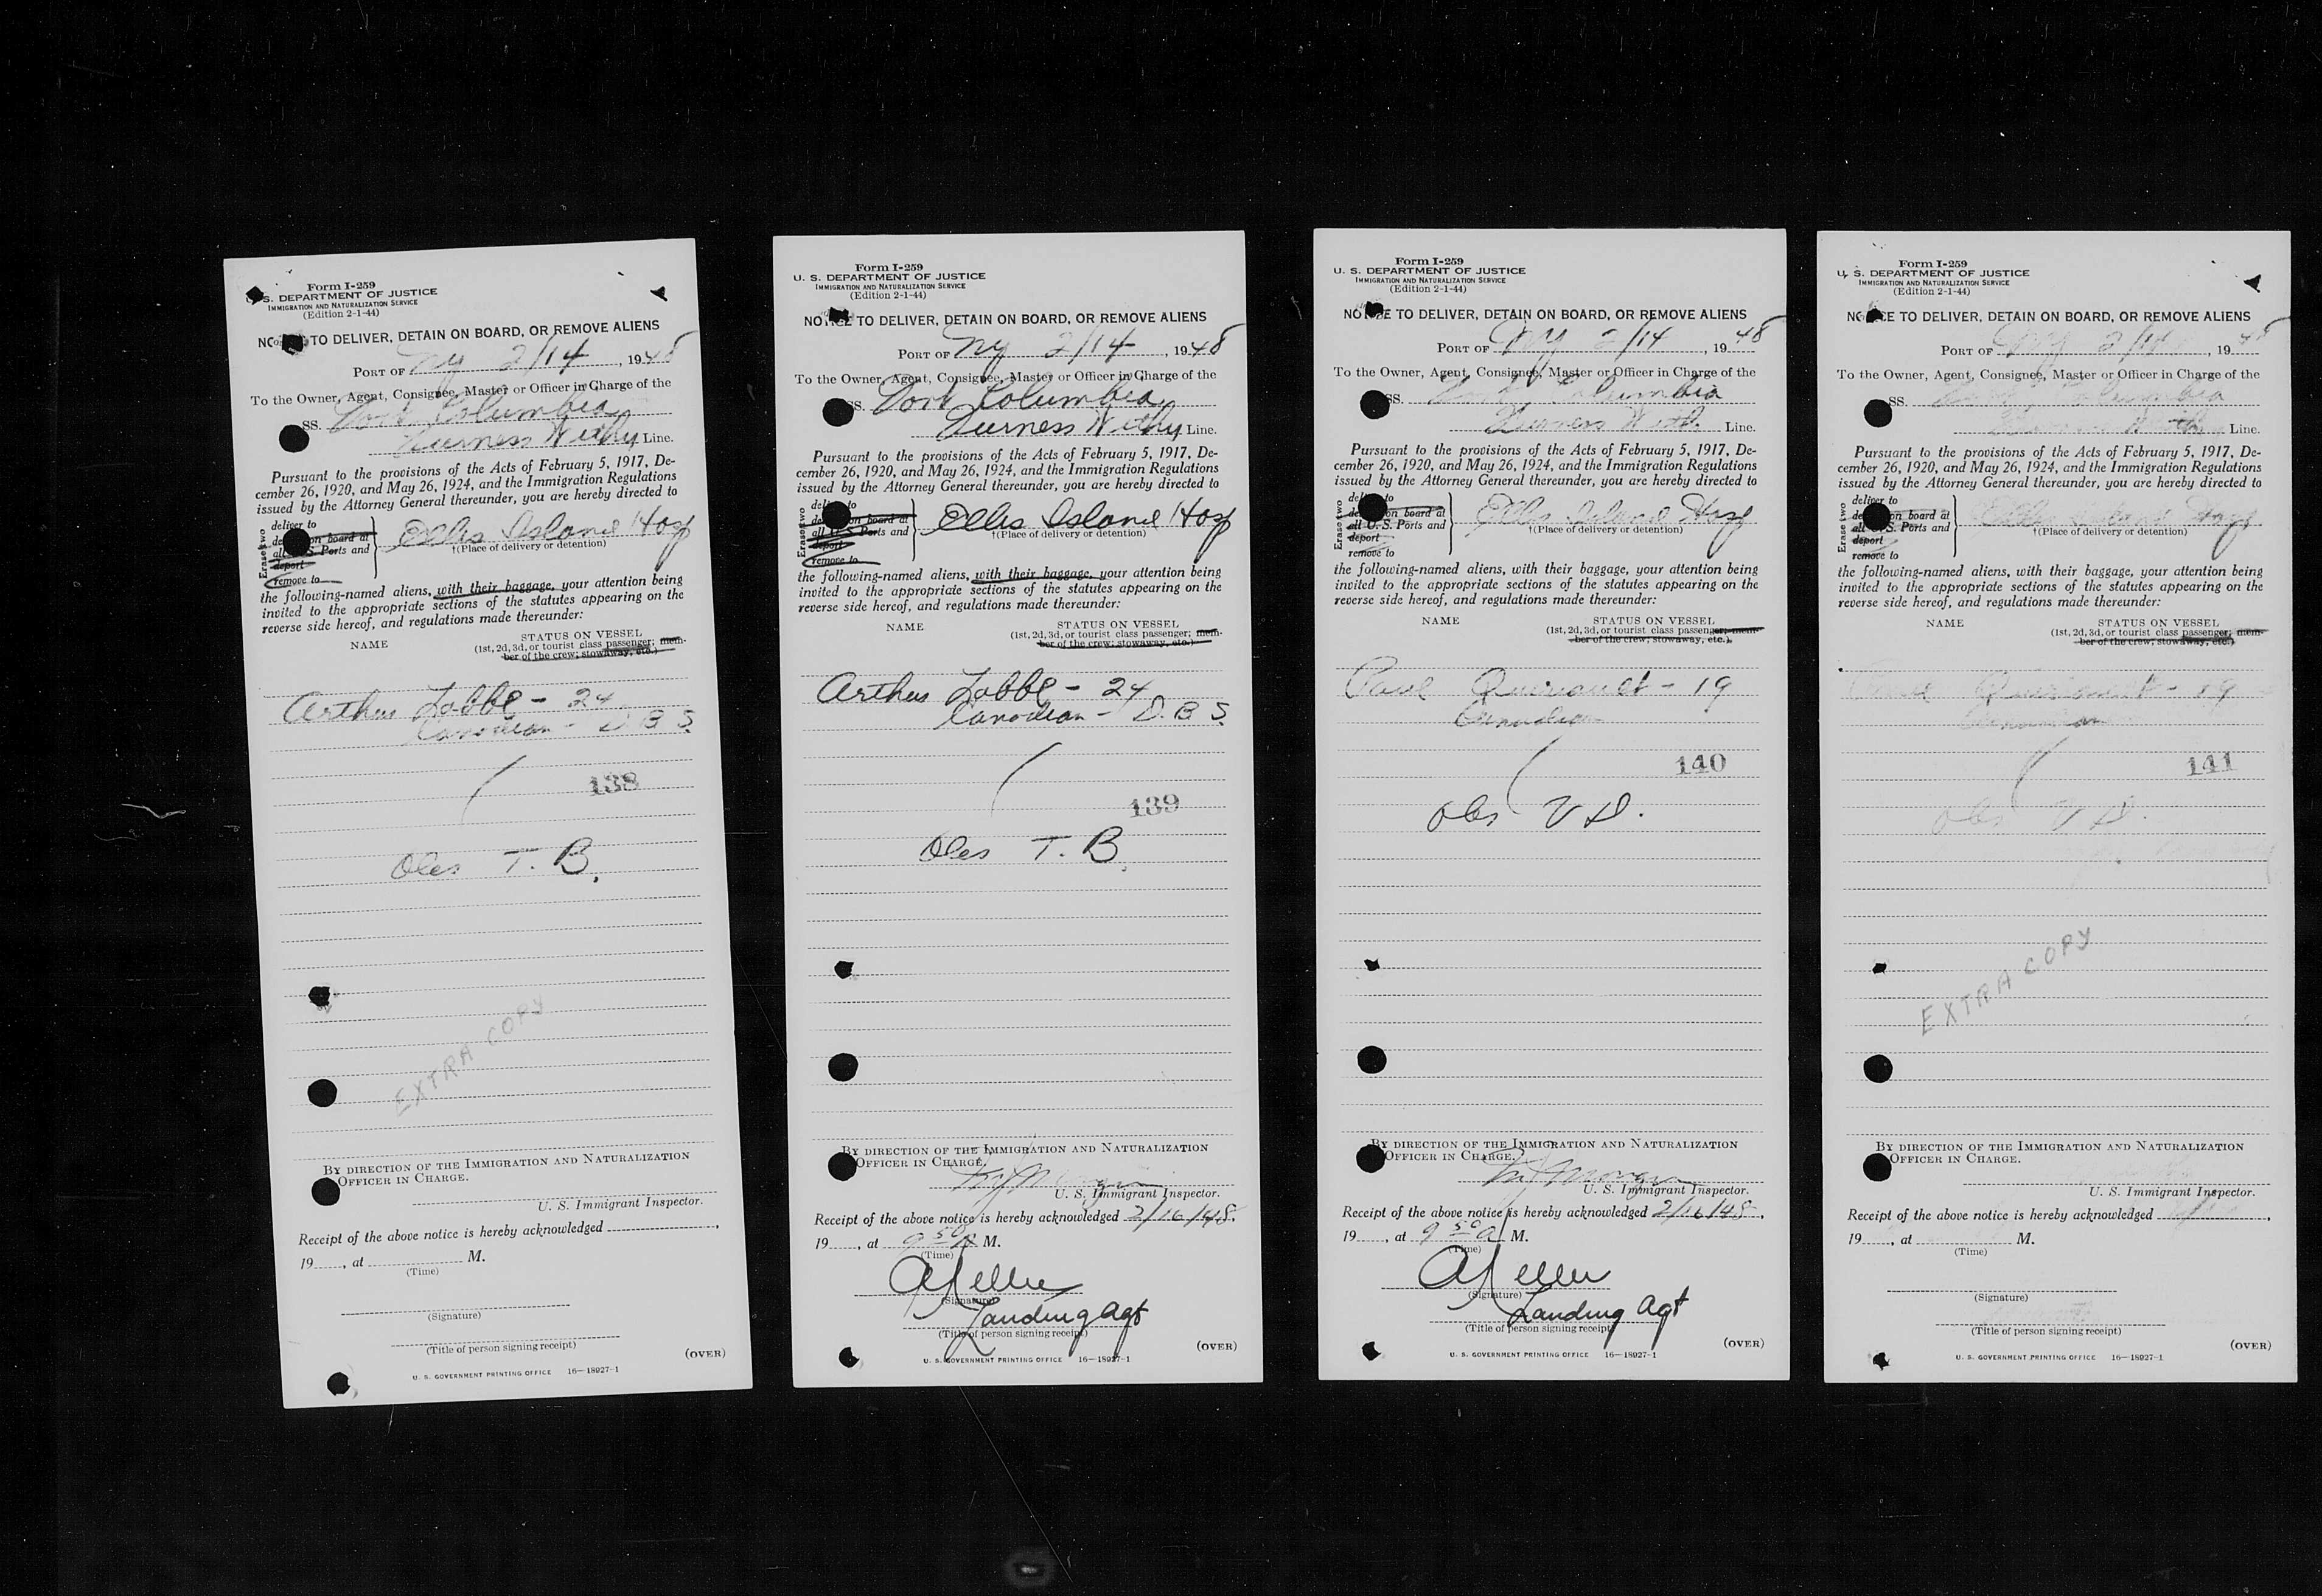 Form I-259
U. S. DEPARTMENT OF JUSTICE
IMMIGRATION AND NATURALIZATION SERVICE
(Edition 2-1-44)
NOTICE TO DELIVER, DETAIN ON BOARD, OR REMOVE ALIENS
PORT OF NY 2/14, 1948
To the Owner, Agent, Consignee, Master or Officer in Charge of the
SS. Columbia
Furness Withy Line.
Pursuant to the provisions of the Acts of February 5, 1917, De-
cember 26, 1920, and May 26, 1924, and the Immigration Regulations
issued by the Attorney General thereunder, you are hereby directed to
Erase two
deliver to
detain on board at
all U. S. Ports and
deport
remove to
Ellis Island Hosp
†(Place of delivery or detention)
the following-named aliens, with their baggage, your attention being
invited to the appropriate sections of the statutes appearing on the
reverse side hereof, and regulations made thereunder:
NAME STATUS ON VESSEL
(1st, 2d, 3d, or tourist class passenger; mem-
ber of the crew; stowaway, etc.)
Arthur Labbe - 24
Canadian - D B S.
138
Obs T. B.
EXTRA COPY
BY DIRECTION OF THE IMMIGRATION AND NATURALIZATION
OFFICER IN CHARGE.
U. S. Immigrant Inspector.
Receipt of the above notice is hereby acknowledged ,
19 , at M.
(Time)
(Signature)
(Title of person signing receipt)
(OVER)
U. S. GOVERNMENT PRINTING OFFICE 16—18927-1
Form I-259
U. S. DEPARTMENT OF JUSTICE
IMMIGRATION AND NATURALIZATION SERVICE
(Edition 2-1-44)
NOTICE TO DELIVER, DETAIN ON BOARD, OR REMOVE ALIENS
PORT OF NY 2/14, 1948
To the Owner, Agent, Consignee, Master or Officer in Charge of the
SS. Columbia
Furness Withy Line.
Pursuant to the provisions of the Acts of February 5, 1917, De-
cember 26, 1920, and May 26, 1924, and the Immigration Regulations
issued by the Attorney General thereunder, you are hereby directed to
Erase two
deliver to
detain on board at
all U. S. Ports and
deport
remove to
Ellis Island Hosp
†(Place of delivery or detention)
the following-named aliens, with their baggage, your attention being
invited to the appropriate sections of the statutes appearing on the
reverse side hereof, and regulations made thereunder:
NAME STATUS ON VESSEL
(1st, 2d, 3d, or tourist class passenger; mem-
ber of the crew; stowaway, etc.)
Arthur Labbe - 24
Canadian - D. B S.
139
Obs T. B.
BY DIRECTION OF THE IMMIGRATION AND NATURALIZATION
OFFICER IN CHARGE.
U. S. Immigrant Inspector.
Receipt of the above notice is hereby acknowledged 2/16/48,
19 , at 9 50 A M.
(Time)
(Signature)
Landing Agt
(Title of person signing receipt)
(OVER)
U. S. GOVERNMENT PRINTING OFFICE 16—18927-1
Form I-259
U. S. DEPARTMENT OF JUSTICE
IMMIGRATION AND NATURALIZATION SERVICE
(Edition 2-1-44)
NOTICE TO DELIVER, DETAIN ON BOARD, OR REMOVE ALIENS
PORT OF NY 2/14, 1948
To the Owner, Agent, Consignee, Master or Officer in Charge of the
SS. Columbia
Furness With. Line.
Pursuant to the provisions of the Acts of February 5, 1917, De-
cember 26, 1920, and May 26, 1924, and the Immigration Regulations
issued by the Attorney General thereunder, you are hereby directed to
Erase two
deliver to
detain on board at
all U. S. Ports and
deport
remove to
Ellis Island Hosp
†(Place of delivery or detention)
the following-named aliens, with their baggage, your attention being
invited to the appropriate sections of the statutes appearing on the
reverse side hereof, and regulations made thereunder:
NAME STATUS ON VESSEL
(1st, 2d, 3d, or tourist class passenger; mem-
ber of the crew; stowaway, etc.)
Paul - 19
Canadian
140
Obs V D.
BY DIRECTION OF THE IMMIGRATION AND NATURALIZATION
OFFICER IN CHARGE.
U. S. Immigrant Inspector.
Receipt of the above notice is hereby acknowledged 2/16/48,
19 , at 9 50 a M.
(Time)
(Signature)
Landing Agt
(Title of person signing receipt)
(OVER)
U. S. GOVERNMENT PRINTING OFFICE 16—18927-1
Form I-259
U. S. DEPARTMENT OF JUSTICE
IMMIGRATION AND NATURALIZATION SERVICE
(Edition 2-1-44)
NOTICE TO DELIVER, DETAIN ON BOARD, OR REMOVE ALIENS
PORT OF NY 2/14, 1948
To the Owner, Agent, Consignee, Master or Officer in Charge of the
SS. Columbia
Line.
Pursuant to the provisions of the Acts of February 5, 1917, De-
cember 26, 1920, and May 26, 1924, and the Immigration Regulations
issued by the Attorney General thereunder, you are hereby directed to
Erase two
deliver to
detain on board at
all U. S. Ports and
deport
remove to
Ellis Island Hosp
†(Place of delivery or detention)
the following-named aliens, with their baggage, your attention being
invited to the appropriate sections of the statutes appearing on the
reverse side hereof, and regulations made thereunder:
NAME STATUS ON VESSEL
(1st, 2d, 3d, or tourist class passenger; mem-
ber of the crew; stowaway, etc.)
Paul - 19
Canadian
141
Obs V D.
EXTRA COPY
BY DIRECTION OF THE IMMIGRATION AND NATURALIZATION
OFFICER IN CHARGE.
U. S. Immigrant Inspector.
Receipt of the above notice is hereby acknowledged ,
19 , at M.
(Time)
(Signature)
(Title of person signing receipt)
(OVER)
U. S. GOVERNMENT PRINTING OFFICE 16—18927-1